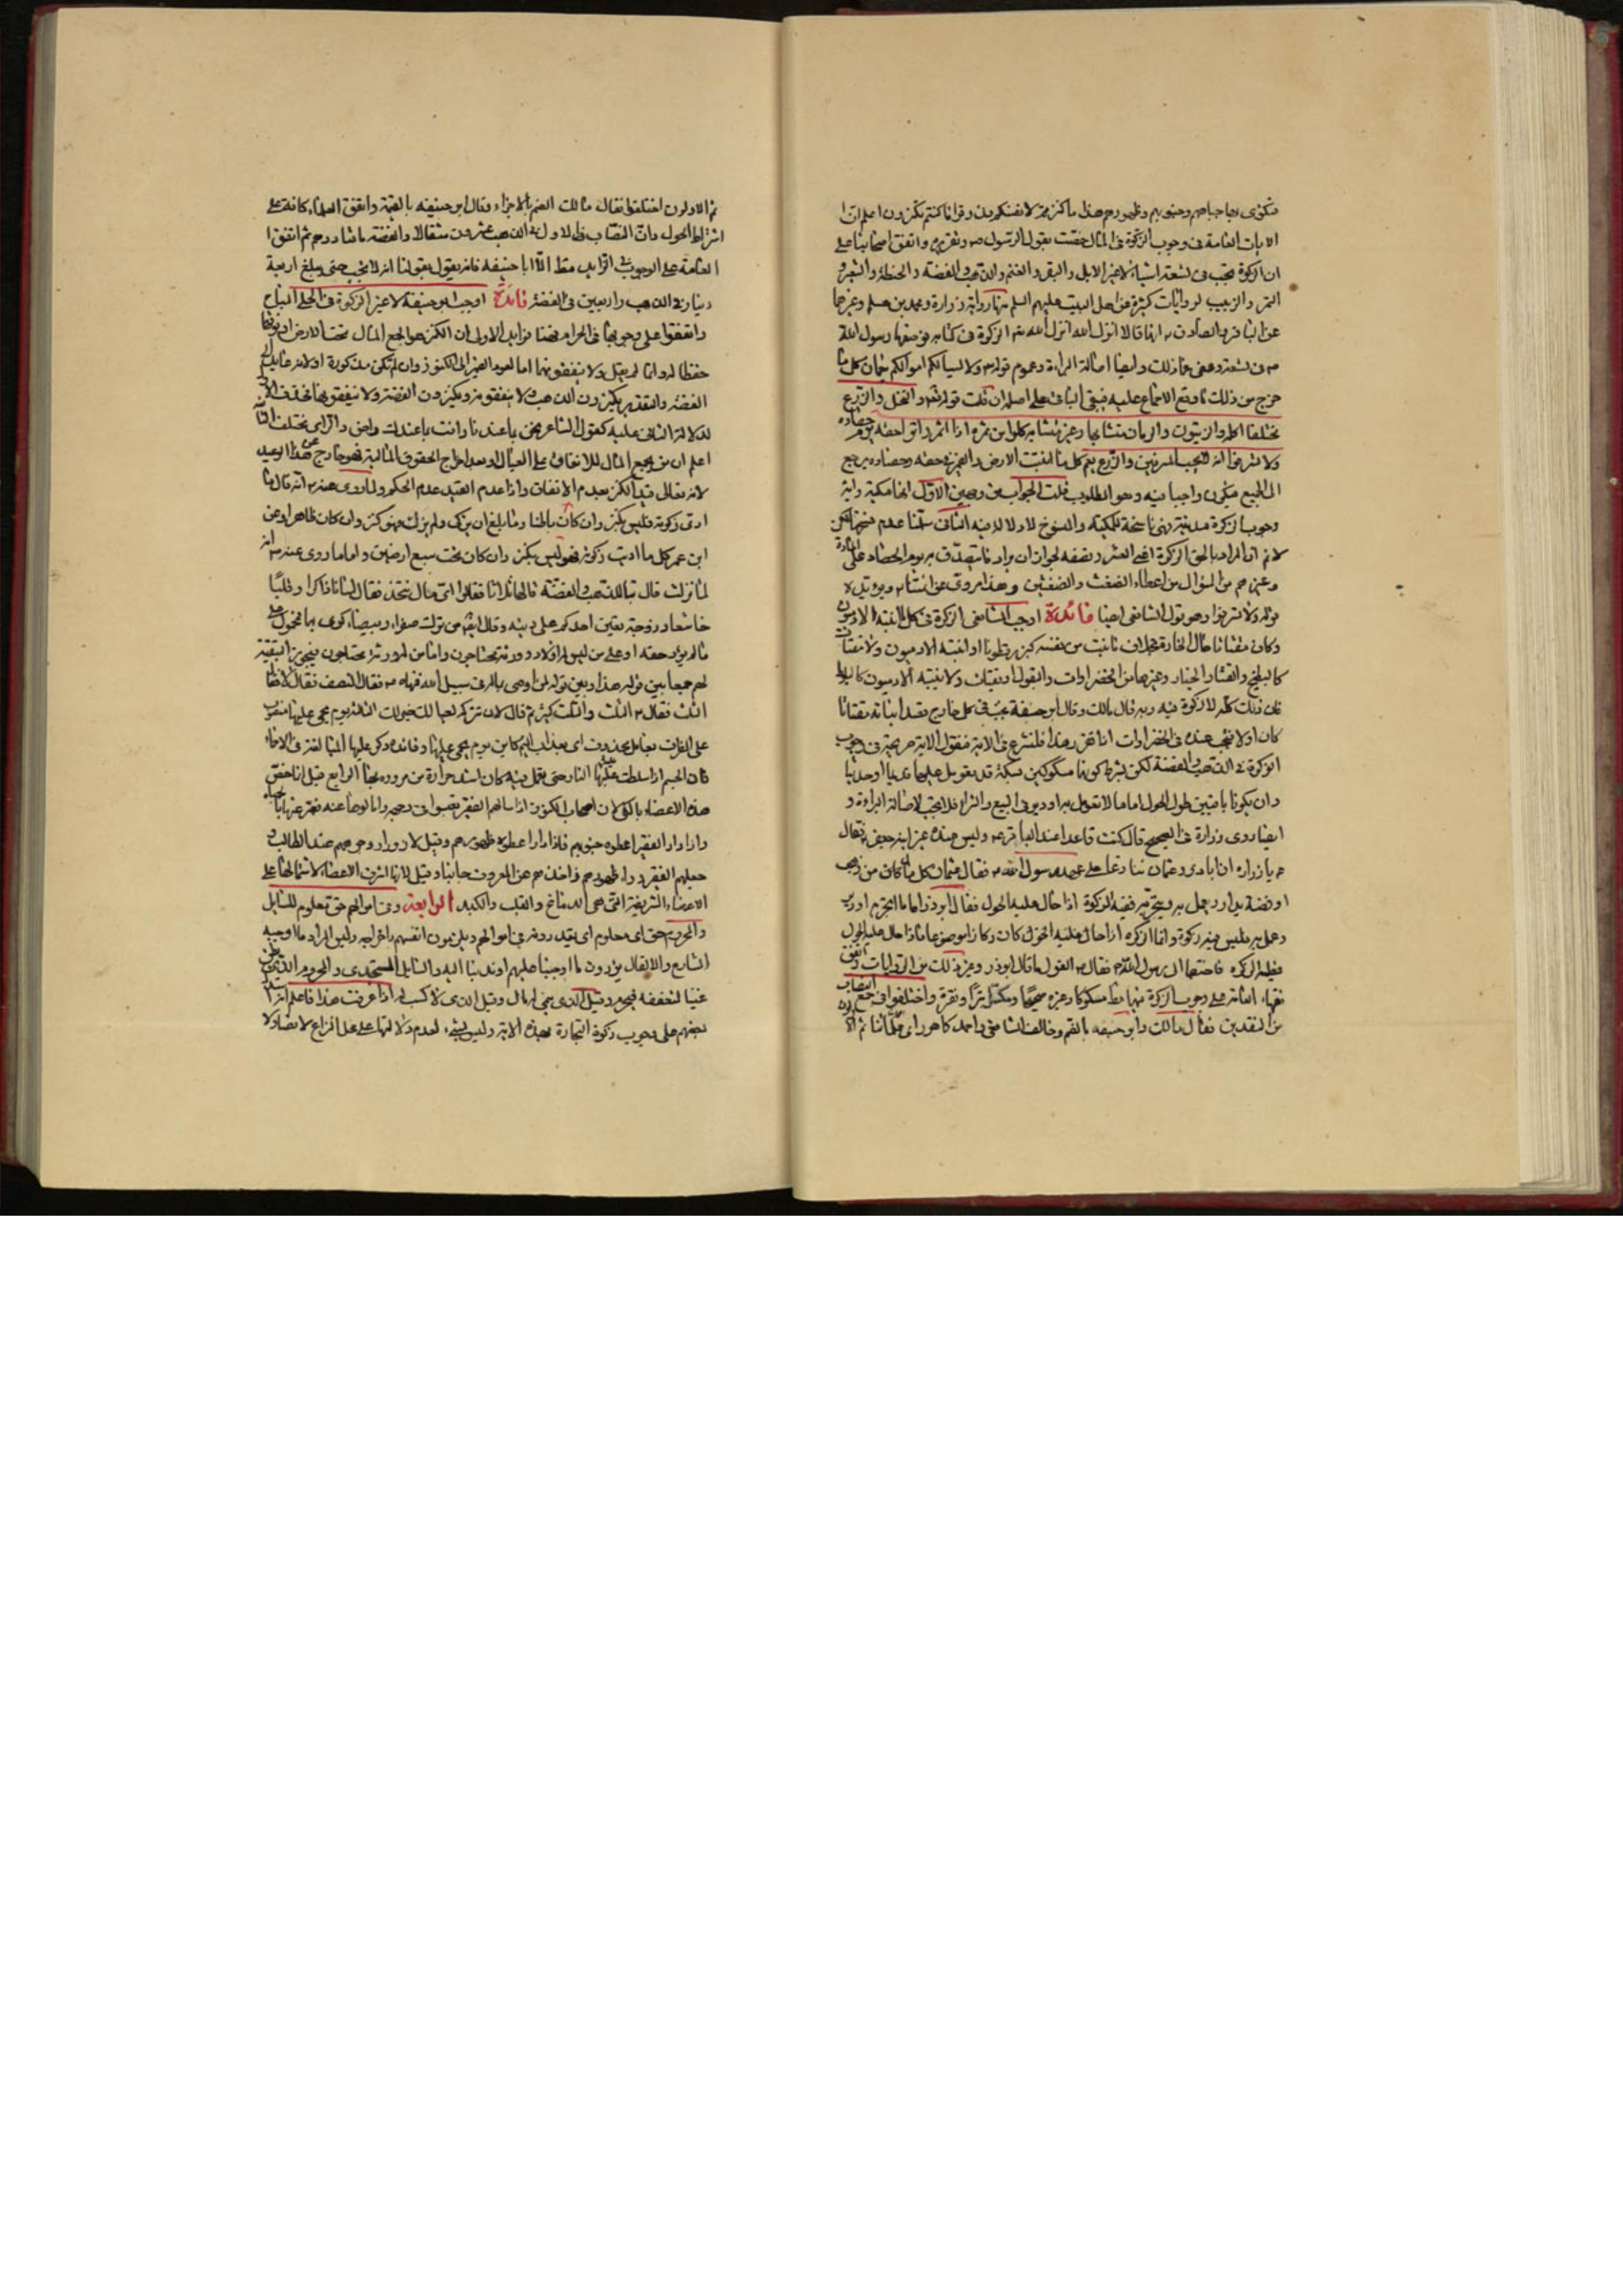 فتكوى بها جباههم وجنوبهم وظهورهم هذا ما كنزتم لانفسكم فذوقوا ما كنتم تكنزون اعلم ان
الايات العامة فى وجوب الزكوة فى المال خصت بقول الرسول ص وتقريره واتفق اصحابنا على
ان الزكوة تجب فى تسعة اشياء لا غير الابل والبقر والغنم والذهب والفضة والحنطة والشعير و
التمر والزبيب لروايات كثيرة عن اهل البيت عليهم السلم منها رواية زرارة ومحمد بن مسلم وغيرهما
عن الباقر والصادق انهما قالا انزل الله الزكوة فى كتابه فوضعها رسول الله
ص فى تسعة وعفى عما ذلك وايضا اصالة البراءة وعموم قوله ولا يسألكم اموالكم خمان كل ما
خرج من ذلك ما وقع الاجماع عليه فبقى الباقى على اصله ان قلت قوله تعم والنخل والزرع
مختلفا اكله والزيتون والرمان متشابها وغير متشابه كلوا من ثمره اذا اثمر واتوا حقه يوم حصاده
ولا تسرفوا انه لا يحب المسرفين والزرع يعم كل ما انبتت الارض والضمير فى حقه وحصاده يرجع
الى الجميع فيكون واجبا فيه وهو المطلوب قلت الجواب من وجهين الاول انها مكية واية
وجوب الزكوة مدنية فهى ناسخة للمكية والمنسوخ لا دلالة فيه الثانى سلمنا عدم نسخها لكن
لا نم ان المراد بالحق الزكوة اعنى العشر ونصفه لجواز ان يراد ما يتصدق به يوم الحصاد على المارة
وغيرهم من السؤال من اعطاء الضغث والضغثين وهذا مروى عن ائمتنا ويؤيده
قوله ولا تسرفوا وهو قول الشافعى ايضا فائدة اوجب الشافعى الزكوة فى كل ما انبته الادميون
وكان مقتاتا حال الاختيار بخلاف ما نبت من نفسه كبزر قطونا او انبته الادميون ولا يقتات
كالبطيخ والقثاء والخيار وغيرها من الخضراوات والبقول او يقتات ولا ينبته الادميون كالبلوط
فان ذلك كله لا زكوة فيه وبه قال مالك وقال ابو حنيفة تجب فى كل خارج يقصد انباته مقتاتا
كان اولا فتجب عنده فى الخضراوات اذا تقرر هذا فلنشرع فى الاية فنقول الاية صريحة فى وجوب
الزكوة فى الذهب والفضة لكن بشرط كونهما مسكوكين بسكة قد تعومل عليها قديما او حديثا
وان يكونا باقيين طول الحول اما ما لا تعومل به او ديرى البيع والشراء فلا تجب لاصالة البراءة و
ايضا روى زرارة فى الصحيح قال كنت قاعدا عند الباقر ع وليس عنده غير ابنه جعفر فقال
يا زرارة ان اباذر وعثمان تنازعا على عهد رسول الله ص فقال عثمان كل مال من ذهب
او فضة يدار ويعمل به ويتجر به ففيه الزكوة اذا حال عليه الحول فقال ابوذر اما ما اتجر به او دير
وعمل به فليس فيه زكوة وانما الزكوة اذا حال عليه الحول كان ركازا او موضوعا فاذا حال عليه الحول
فعليه الزكوة فاختصما الى رسول الله فقال ص القول ما قال ابوذر وغير ذلك من الروايات واتفق
فقهاء العامة على وجوب الزكوة فيهما مطلقا مسكوكا وغيره صحيحا ومكسرا تبرا ونقرة واختلفوا فى جمع النصاب
من النقدين فقال مالك وابو حنيفه بالضم وخالف الشافعى واحمد كما هو راى علمائنا ثم ان
ثم الاولون اختلفوا فقال مالك الضم بالاجزاء وقال ابو حنيفه بالقيمة واتفق العلماء كافة على
اشتراط الحول وان النصاب فى الاول فى الذهب عشرون مثقالا والفضة مائتا درهم ثم اتفق
العامة على الوجوب فى الزايد مطلقا الا ابا حنيفه فانه يقول بقولنا انه لا تجب حتى يبلغ اربعة
دينار فى الذهب واربعين فى الفضة فائدة اوجب ابو حنيفة لا غير الزكوة فى الحلى المباح
واتفقوا على وجوبها فى الحرام وهنا فوايد الاولى ان الكنز هو الجمع المال تحت الارض او فوقها
حفظا له وانما لم يقل ولا ينفقونهما اما لعود الضمير الى الكنوز وان لم تكن مذكورة او لانه عايد الى
الفضة والتقدير يكنزون الذهب ولا ينفقونه ويكنزون الفضة ولا ينفقونها فحذف الاول
لدلالة الثانى عليه كقول الشاعر نحن بما عندنا وانت بما عندك راض والراى مختلف الثانية
اعلم ان من يجمع المال للانفاق على العيال او بعد اخراج الحقوق المالية فهو خارج عن هذا الوعيد
لانه تعالى قيد الكنز بعدم الانفاق واذا عدم القيد عدم الحكم ولما روى عنه انه قال ما
ادى زكوته فليس بكنز وان كان باطنا وما بلغ ان يزكى ولم يزك فهو كنز وان كان ظاهرا وعن
ابن عمر كل ما اديت زكوته فهو ليس بكنز وان كان تحت سبع ارضين واما ما روى عنه انه
لما نزلت قال تبا للذهب والفضة قالها ثلاثا فقالوا اى مال نتخذ فقال لسانا ذاكرا وقلبا
خاشعا وزوجة تعين احدكم على دينه وقال ايضا من ترك صفراء وبيضاء كوى بها فمحمول على
ما لم يؤد حقه او على من ليس له اولاد وورثة محتاجون واما من له ورثة محتاجون فيجوز التبقية
لهم جمعا بين قوله هذا وبين قوله لمن اوصى بماله فى سبيل الله فنهاه ص فقال النصف فقال لا فقال
الثلث فقال الثلث والثلث كثير ثم قال لان تترك لعيالك خير لك الثالثة يوم يحمى عليها منصوب
على الظرف بعامل محذوف اى بعذاب اليم كاين يوم يحمى عليها وفائدة ذكر عليها المبالغة فى الاحماء
فان الجسم اذا سلطت عليها النار حتى يحمى كان اشد حرارة من مروره بها الرابع قيل انما خص
هذه الاعضاء بالكى لان اصحاب الكنوز اذا سالهم الفقير تعبسوا فى وجهه وامالوها عنه
واذا دار الفقير اعطوه جنوبهم فاذا دارا اعطوه ظهورهم وقيل لا
جعلهم الفقير وراء ظهورهم واخذهم عن المعروف جانبا وقيل لانها اشرف الاعضاء لاشتمالها على
الاعضاء الشريفة التى هى الدماغ والقلب والكبد الرابعة وفى اموالهم حق معلوم للسايل
والمحروم حق اى معلوم اى يقيد
الشارع والا لقال يؤدون ما اوجبنا عليهم او ندبنا اليه والسايل المستجدى والمحروم الذى يظن
غنيا لتعففه فيحرم وقيل الذى لا كسب له اذا عرفت هذا فاعلم انه استدل
بعضهم على وجوب زكوة التجارة بهذه الاية وليس بشىء لعدم دلالتها على محل النزاع